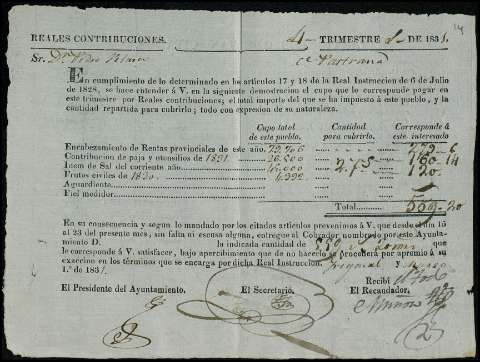 14
REALES CONTRIBUCIONES. 4 TRIMESTRE de 1831.
Sr. Dn. Pedro
En cumplimiento de lo determinado en los artículos 17 y 18 de la Real Instruccion de 6 de Julio
de 1828, se hace entender á V. en la siguiente demostracion el cupo que le corresponde pagar en
este trimestre por Reales contribuciones; el total importe del que se ha impuesto á este pueblo, y la
cantidad repartida para cubrirlo; todo con expresion de su naturaleza.
Cupo total de este pueblo. Cantidad para cubrirlo. Corresponde á este interesado
Encabezamiento de Rentas provinciales de este año. 279-6
Contribucion de paja y utensilios de 1831. 26.500 160-14
Idem de Sal del corriente año. 120.
Frutos civiles de 1830. 4992
Aguardiente
Fiel medidor
Total 559-20
En su consecuencia y segun lo mandado por los citados artículos prevenimos á V. que desde el 15
al 23 del presente mes, sin falta ni escusa alguna, entregue al Cobrador nombrado por este Ayunta-
miento D. la indicada cantidad de 559 que
le corresponde á V. satisfacer, bajo apercibimento que de no hacerlo se procederá por apremio á su
exaccion en los términos que se encarga por dicha Real Instruccion.
1.º de 1831
El Presidente del Ayuntamiento. El Secretario. Recibí
El Recaudador.